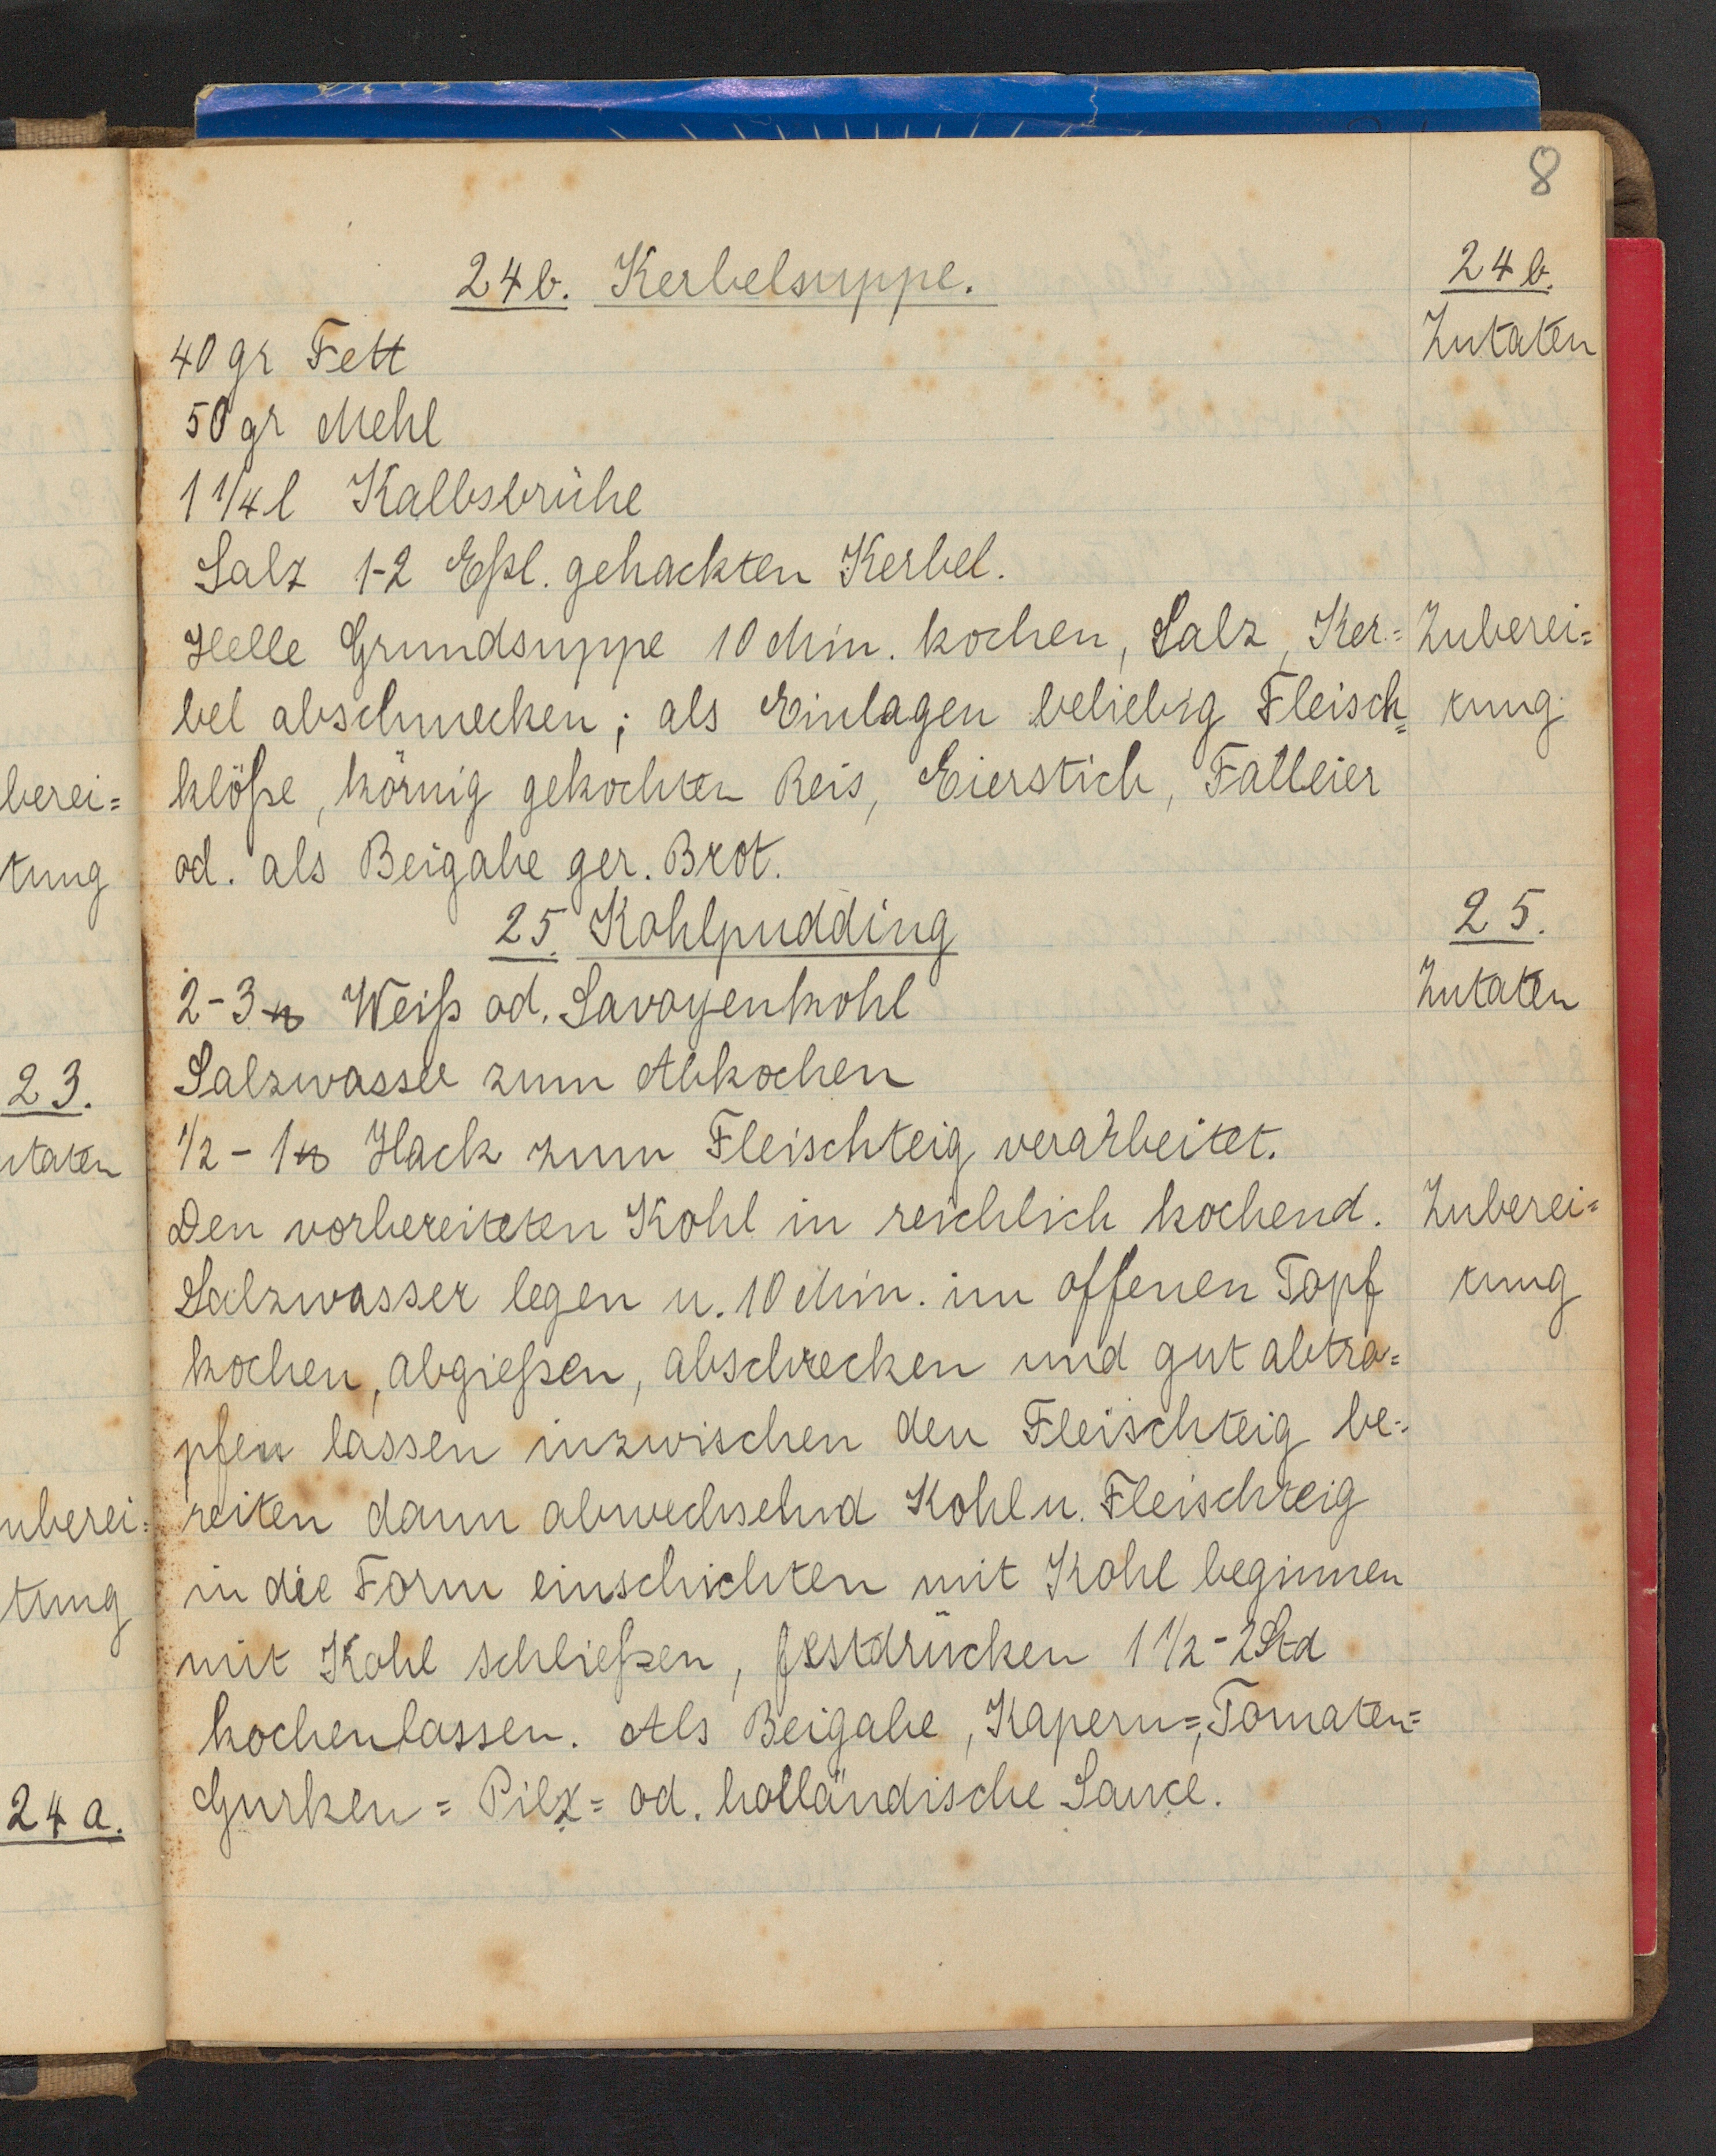 8
24b. Kerbelsuppe.
24b.
Zutaten
40 gr Fett
50 gr Mehl
1 1/4 l Kalbsbrühe
Salz 1-2 Eßl. gehackten Kerbel.
Helle Grundsuppe 10 Min. kochen, Salz, Ker=
Zuberei=
bel abschmecken; als Einlagen beliebig Fleisch=
tung
klöße, körnig gekochten Reis, Eierstich, Falleier
od. als Beigabe ger. Brot.
25. Kohlpudding
25.
Zutaten
2-3 ℔ Weiß od. Savoyenkohl
Salzwasser zum Abkochen
1/2 - 1 ℔ Hack zum Fleischteig verarbeitet.
Den vorbereiteten Kohl in reichlich kochend.
Zuberei=
Salzwasser legen u. 10 Min. im offenen Topf
tung
kochen, abgießen, abschrecken und gut abtro=
pfen lassen inzwischen den Fleischteig be=
reiten dann abwechselnd Kohl u. Fleischteig
in die Form einschichten mit Kohl beginnen
mit Kohl schließen, festdrücken 1 1/2 - 2 Std
kochen lassen. Als Beigabe, Kapern=, Tomaten=
Gurken= Pilz= od. holländische Sauce.
berei=
tung
23.
utaten
uberei=
tung
24a.